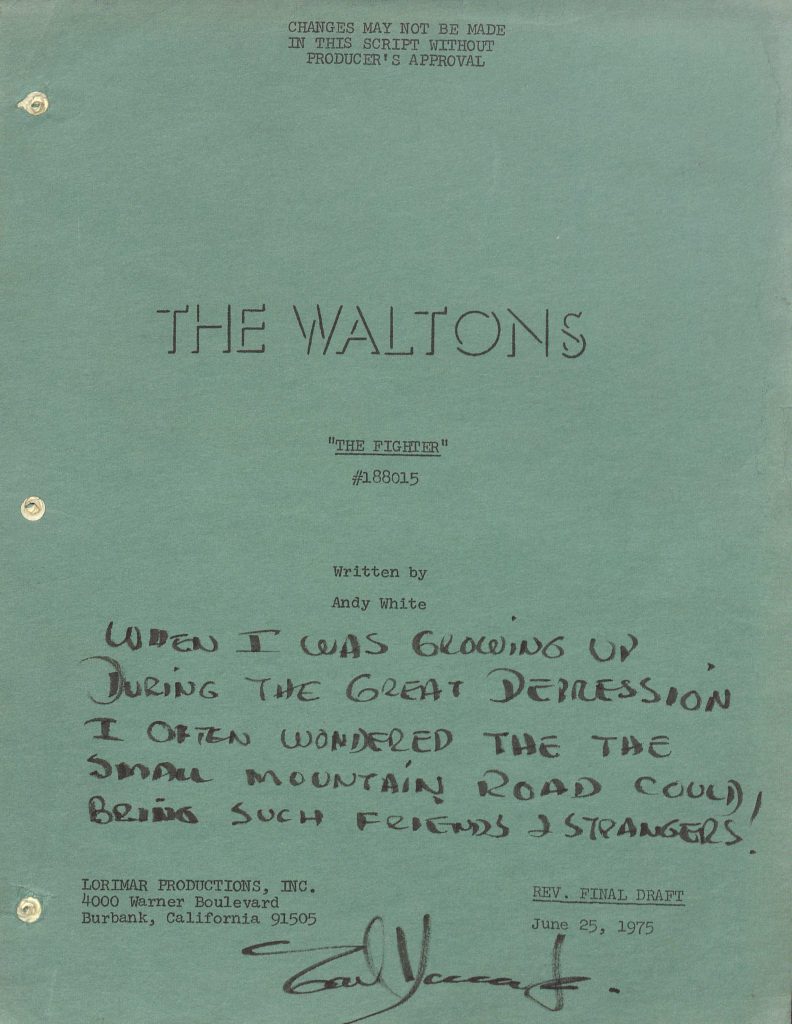 CHANGES MAY NOT BE MADE
IN THIS SCRIPT WITHOUT
PRODUCER'S APPROVAL
THE WALTONS
"THE FIGHTER"
#188015
Written by
Andy White
WHEN I WAS GROWING UP
DURING THE GREAT DEPRESSION
I OFTEN WONDERED THE THE
SMALL MOUNTAIN ROAD COULD
BRING SUCH FRIENDS & STRANGERS!
LORIMAR PRODUCTIONS, INC.
4000 Warner Boulevard
Burbank, California 91505
REV. FINAL DRAFT
June 25, 1975